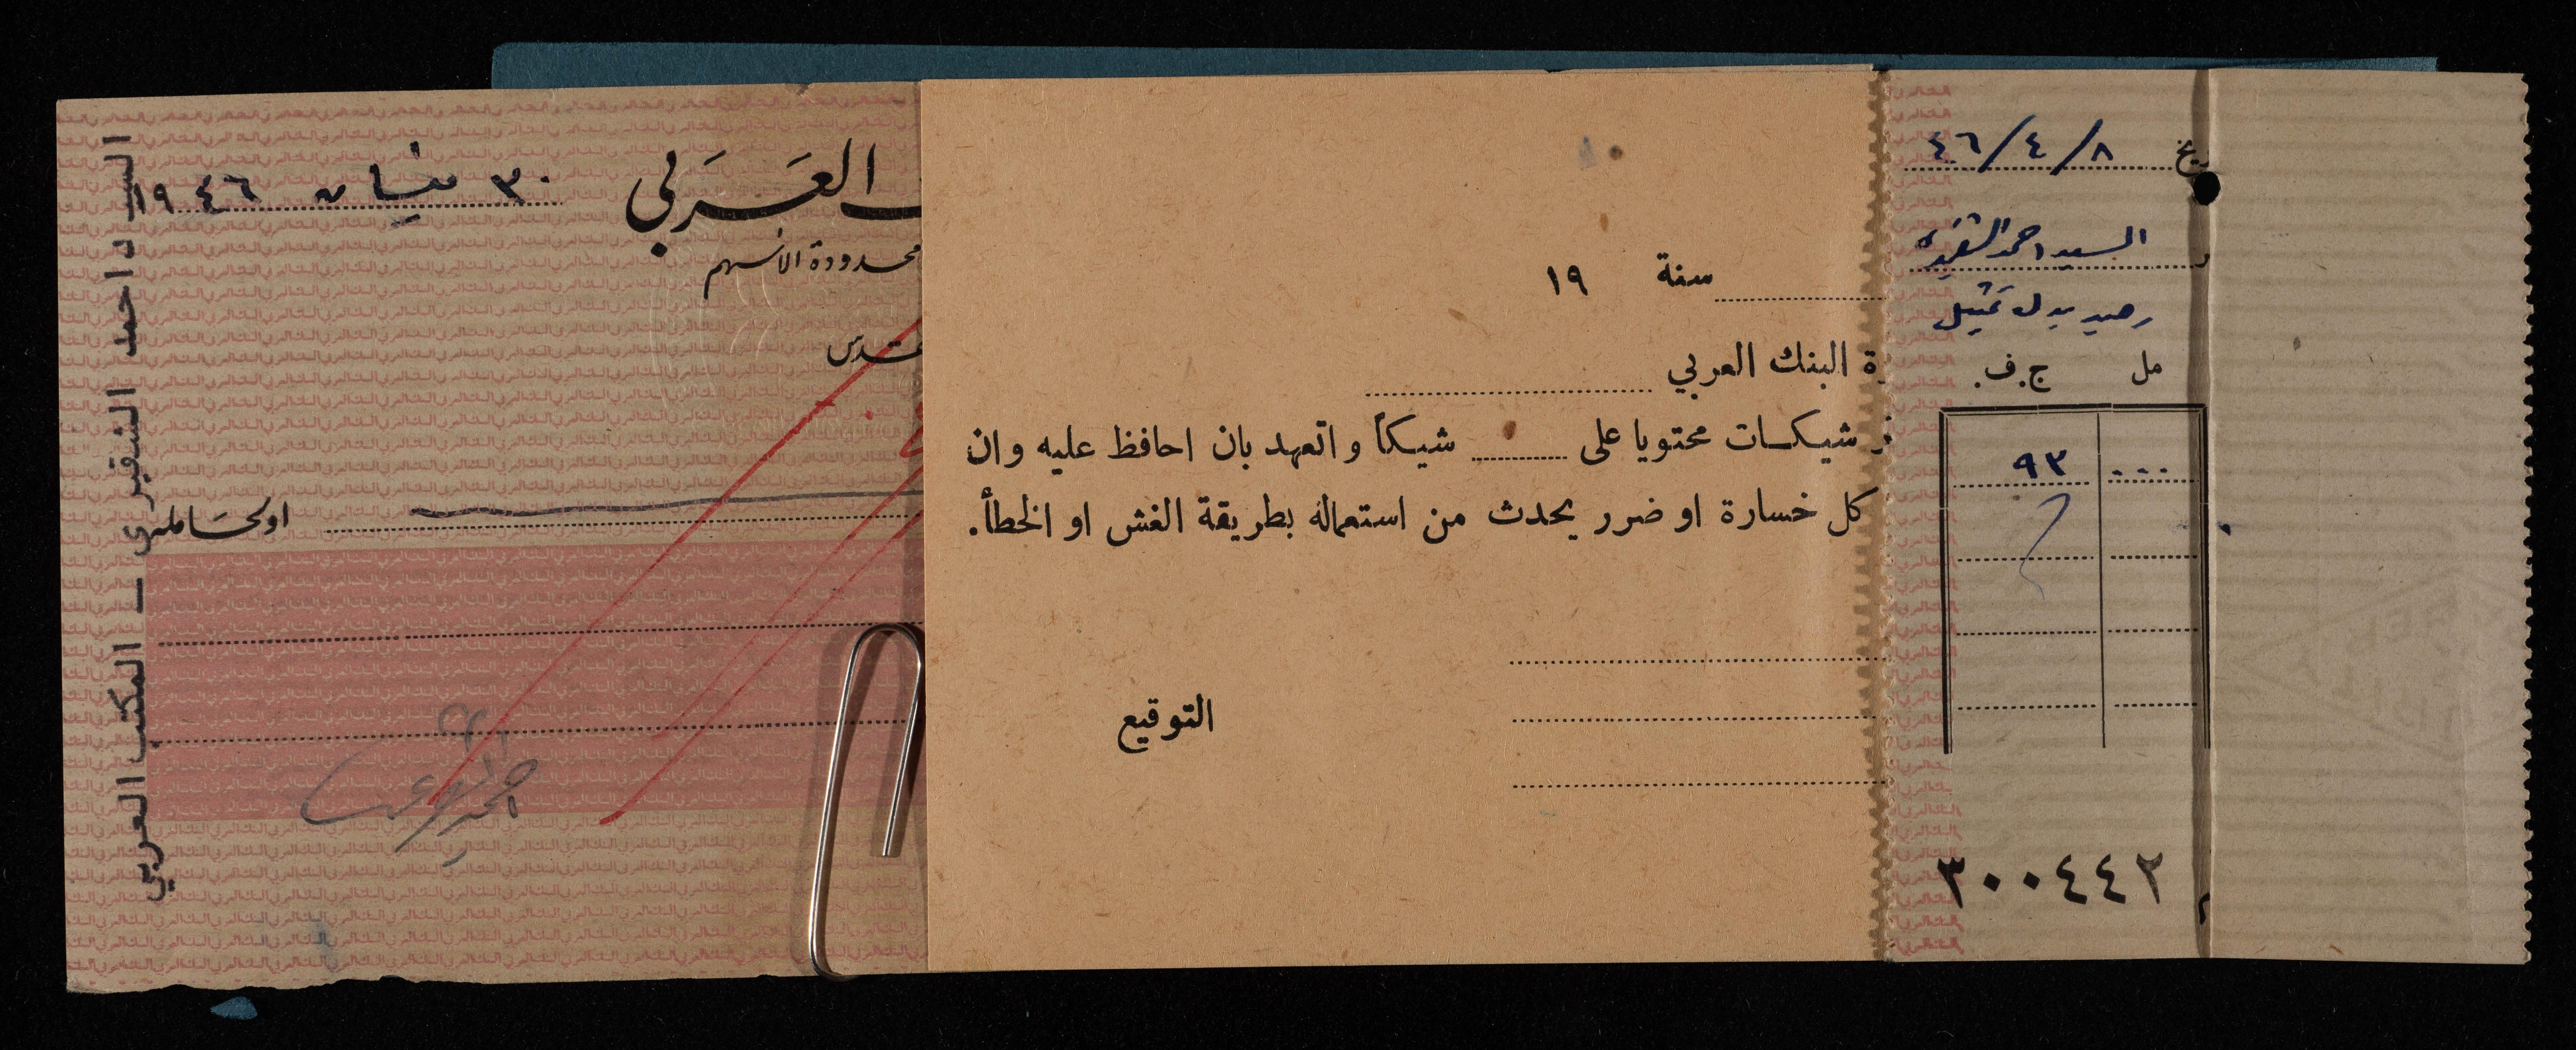 السيد احمد الشقيري — المكتب العربي
٣٠ نيسان ١٩٤٦
العربي
محدودة الأسهم
او لحامله
سنة ١٩
ة البنك العربي
شيكات محتويا على شيكاً واتعهد بان احافظ عليه وان
كل خسارة او ضرر يحدث من استعماله بطريقة الغش او الخطأ.
التوقيع
يخ ٤٦/٤/٨
السيد احمد الشقيري
رصيد بدل تمثيل
مل ج.ف.
... ٩٣
٣٠٠٤٤٢